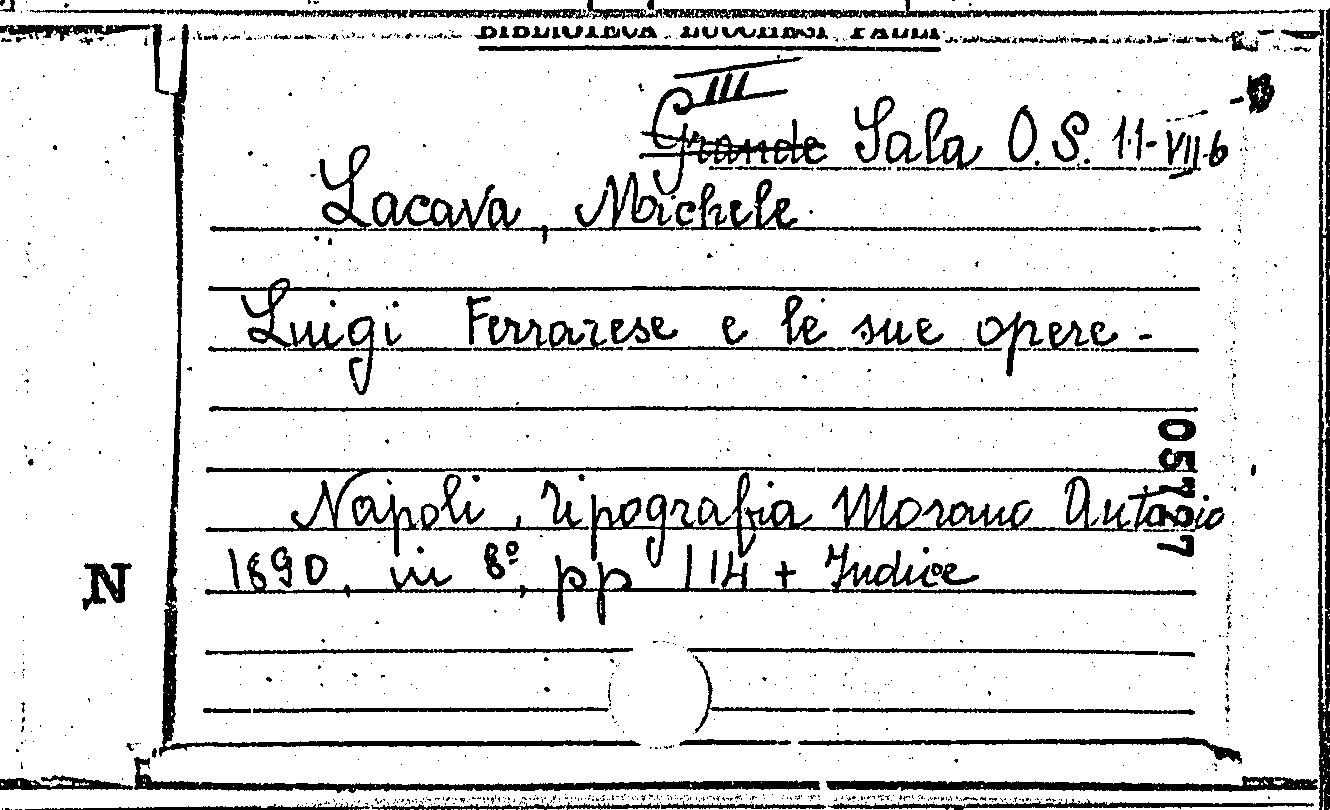 BIBLIOTECA LUCCHESI PALLI
III
Grande Sala O.S. 11-VII-6
Lacava, Michele
Luigi Ferrarese e le sue opere.
Napoli, Tipografia Morano Antonio
1890, in 8°, pp 114 + Indice
05727
N